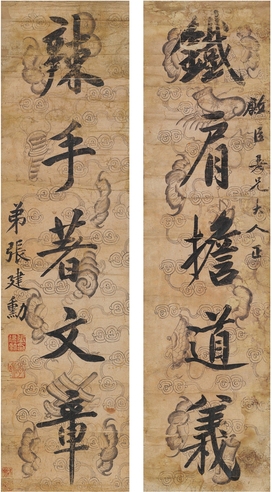 鐵肩擔道義
臣兄大人正
辣手著文章
弟張建勳